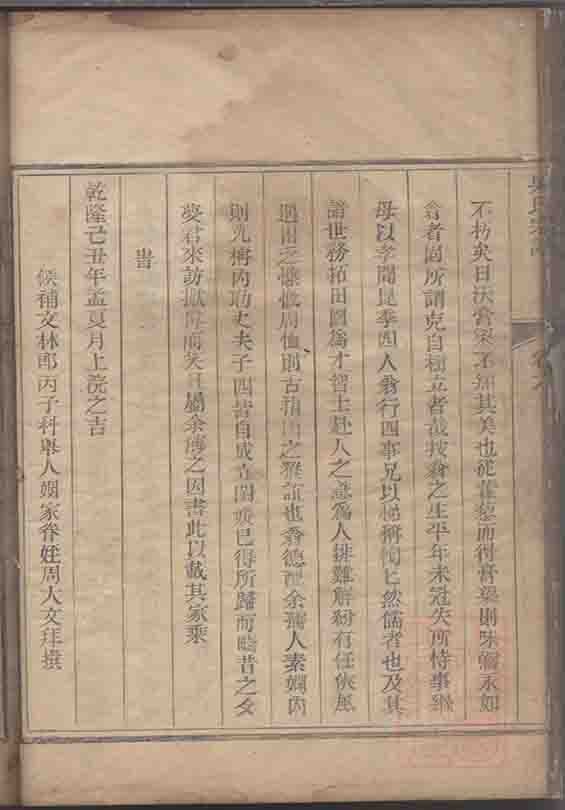 不朽矣日沃膏粱不知其美也從藿藜而得膏粱則味彌永如
翁者固所謂克自樹立者哉按翁之生平年未冠失所恃事繼
母以孝聞昆季四人翁行四事兄以悌稱恂恂然儒者也及其
諸世務拓田園為才智士赴人之急為人排難解紛有任俠風
之慷慨周恤則古
之雅誼也翁德配余孺人素嫻內
則光
內功丈夫子四皆自成立閨媛已得所歸而疇昔之
君來訪
屬余傳之因書此以載其家乘
旹
乾隆己丑年孟夏月上浣之吉
候補文林郎丙子科舉人姻家眷姪周大文拜撰